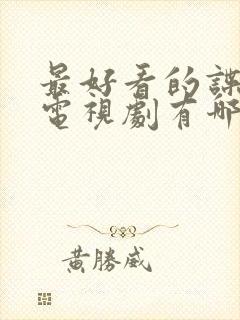 最好看的諜
電視劇有哪
黃勝威